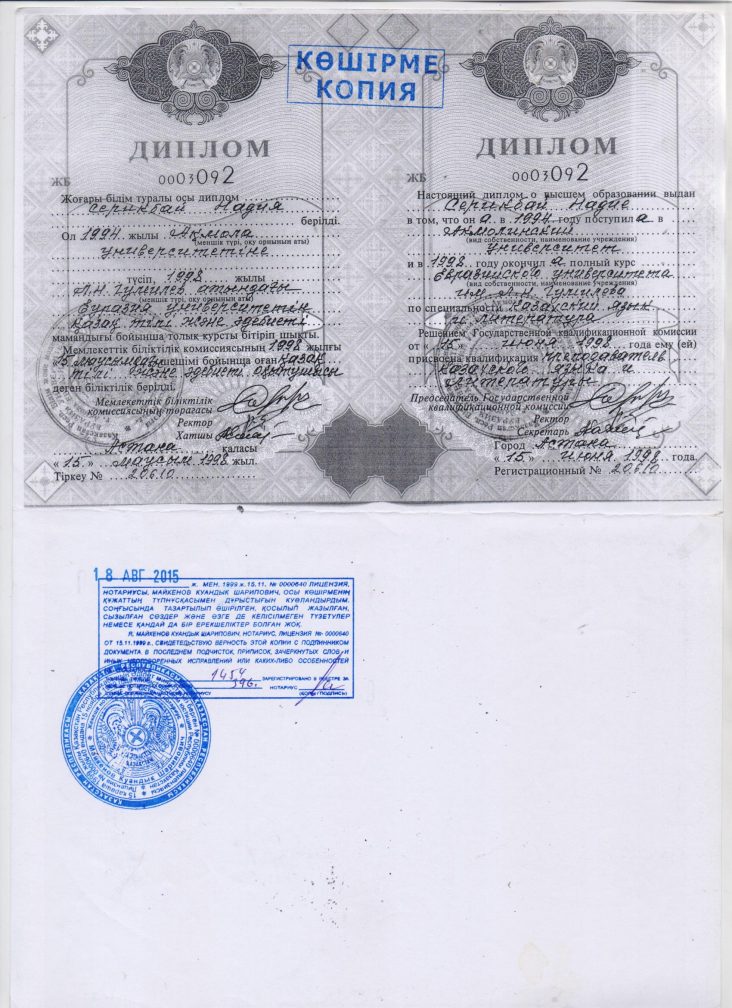 КӨШІРМЕ
КОПИЯ
ДИПЛОМ
ЖБ 0003092
Жоғары білім туралы осы диплом
Серикбай Надия
берілді.
Ол 1994 жылы Ақмола
(меншік түрі, оқу орнының аты)
университетіне
түсіп, 1998 жылы
Л.Н. Гумилев атындағы
(меншік түрі, оқу орнының аты)
Еуразия университетін
қазақ тілі және әдебиеті
мамандығы бойынша толық курсты бітіріп шықты.
Мемлекеттік біліктілік комиссиясының 1998 жылғы
15 маусымдағы шешімі бойынша оған қазақ
тілі және әдебиеті оқытушысы
деген біліктілік берілді.
Мемлекеттік біліктілік
комиссиясының төрағасы
Ректор
Хатшы
Астана қаласы
« 15 » маусым 1998 жыл.
Тіркеу № 20610
ДИПЛОМ
ЖБ 0003092
Настоящий диплом о высшем образовании выдан
Серикбай Надие
в том, что он а в 1994 году поступил а в
Акмолинский
(вид собственности, наименование учреждения)
университет
и в 1998 году окончил а полный курс
Евразийского университета
(вид собственности, наименование учреждения)
им. Л.Н. Гумилева
по специальности казахский язык
и литература
Решением Государственной квалификационной комиссии
от « 15 » июня 1998 года ему (ей)
присвоена квалификация преподаватель
казахского языка и
литературы
Председатель Государственной
квалификационной комиссии
Ректор
Секретарь
Город Астана
« 15 » июня 1998 года.
Регистрационный № 20610
18 АВГ 2015
ж. МЕН, 1999 ж. 15.11. № 0000640 ЛИЦЕНЗИЯ,
НОТАРИУСЫ, МАЙКЕНОВ КУАНДЫК ШАРИПОВИЧ, ОСЫ КӨШІРМЕНІҢ
ҚҰЖАТТЫҢ ТҮПНҰСҚАСЫМЕН ДҰРЫСТЫҒЫН КУӘЛАНДЫРДЫМ.
СОҢҒЫСЫНДА ТАЗАРТЫЛЫП ӨШІРІЛГЕН, ҚОСЫЛЫП ЖАЗЫЛҒАН,
СЫЗЫЛҒАН СӨЗДЕР ЖӘНЕ ӨЗГЕ ДЕ КЕЛІСІЛМЕГЕН ТҮЗЕТУЛЕР
НЕМЕСЕ ҚАНДАЙ ДА БІР ЕРЕКШЕЛІКТЕР БОЛҒАН ЖОҚ.
Я, МАЙКЕНОВ КУАНДЫК ШАРИПОВИЧ, НОТАРИУС, ЛИЦЕНЗИЯ № 0000640
ОТ 15.11.1999 г., СВИДЕТЕЛЬСТВУЮ ВЕРНОСТЬ ЭТОЙ КОПИИ С ПОДЛИННИКОМ
ДОКУМЕНТА. В ПОСЛЕДНЕМ ПОДЧИСТОК, ПРИПИСОК, ЗАЧЕРКНУТЫХ СЛОВ И
ИНЫХ НЕОГОВОРЕННЫХ ИСПРАВЛЕНИЙ ИЛИ КАКИХ-ЛИБО ОСОБЕННОСТЕЙ
1454 ЗАРЕГИСТРИРОВАНО В РЕЕСТРЕ ЗА
НОТАРИУС
(ҚОЛЫ/ПОДПИСЬ)